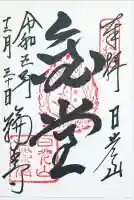 奉拝 日光山
金堂
令和五年
十二月三十日
輪王寺